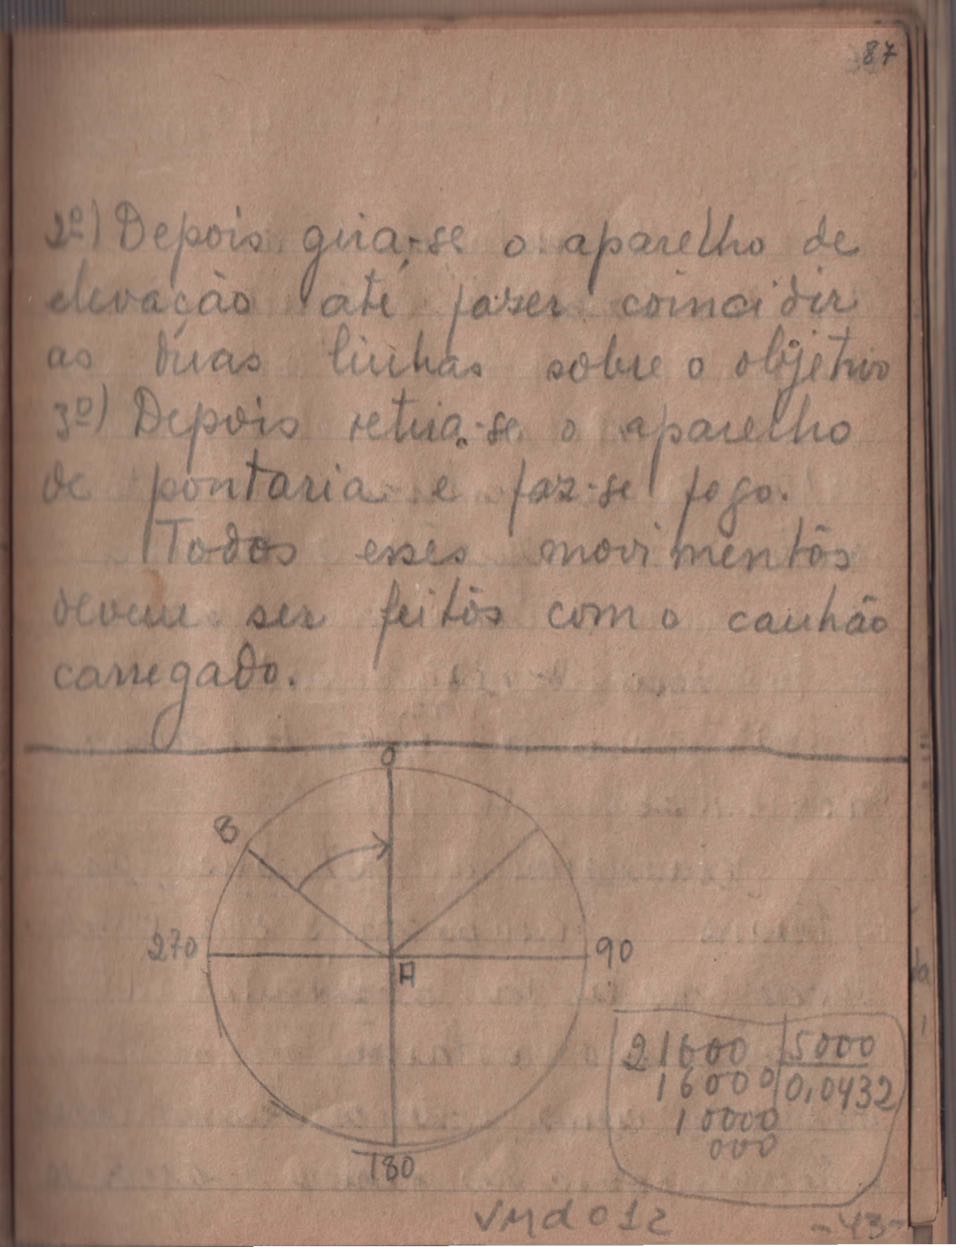 87
2º) Depois gira-se o aparelho de
elevação até fazer coincidir
as duas linhas sobre o objetivo
3º) Depois retira-se o aparelho
de pontaria e faz-se fogo.
Todos esses movimentos
devem ser feitos com o canhão
carregado.
0
B
270
90
A
180
21600 5000
16000 0,0432
10000
000
-43-